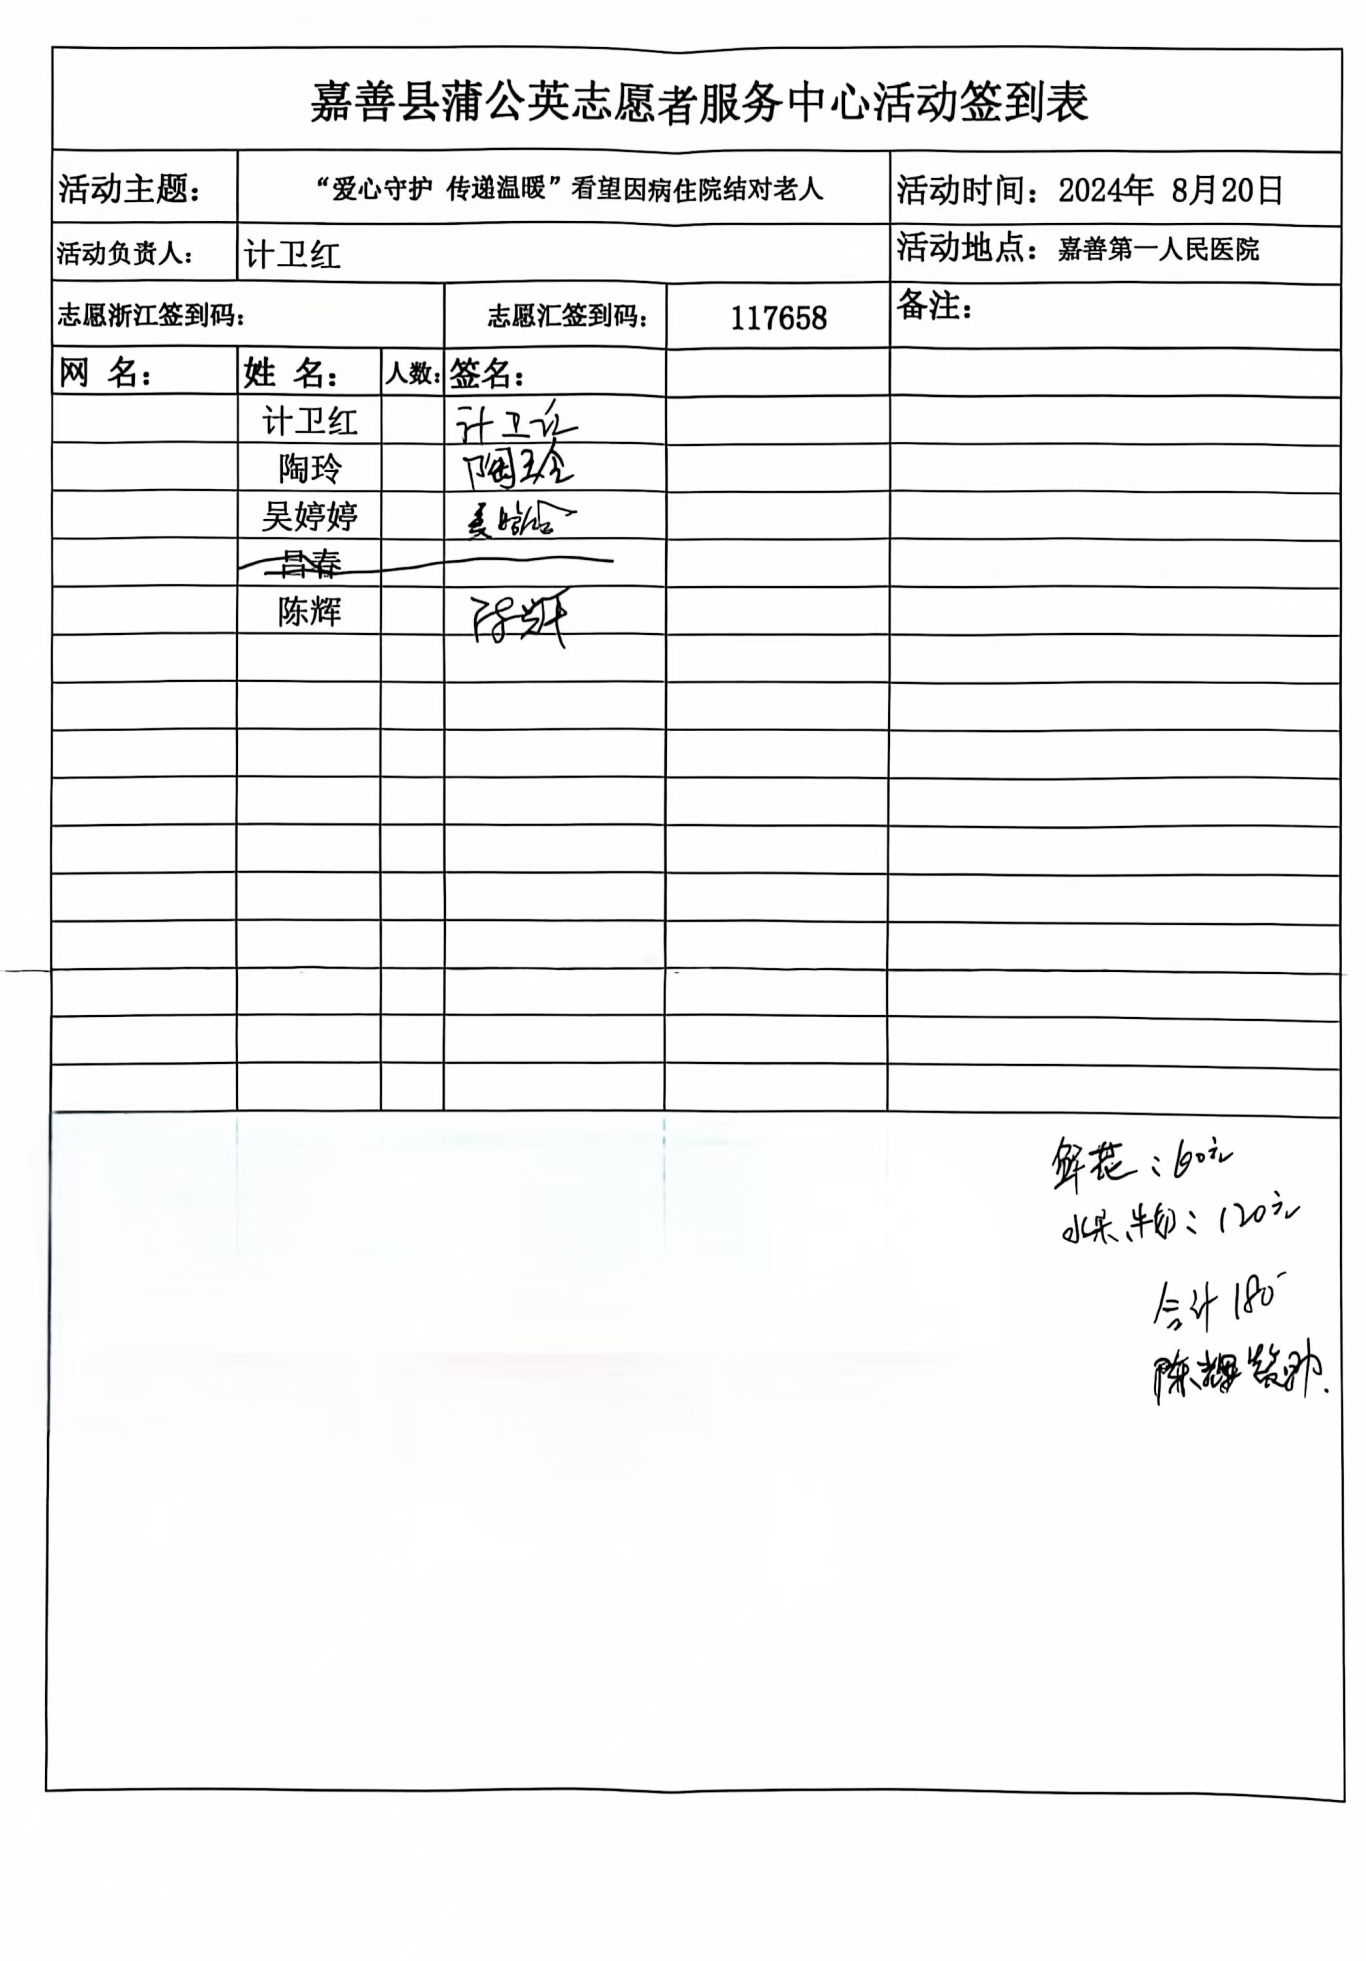 嘉善县蒲公英志愿者服务中心活动签到表
活动主题: “爱心守护 传递温暖”看望因病住院结对老人 活动时间: 2024年 8月20日
活动负责人: 计卫红 活动地点: 嘉善第一人民医院
志愿浙江签到码: 志愿汇签到码: 117658 备注:
网 名: 姓 名: 人数: 签名:
计卫红 计卫红
陶玲 陶玲
吴婷婷 吴婷婷
吕春
陈辉 陈辉
鲜花:60元
水果,牛奶:120元
合计180
陈辉赞助.